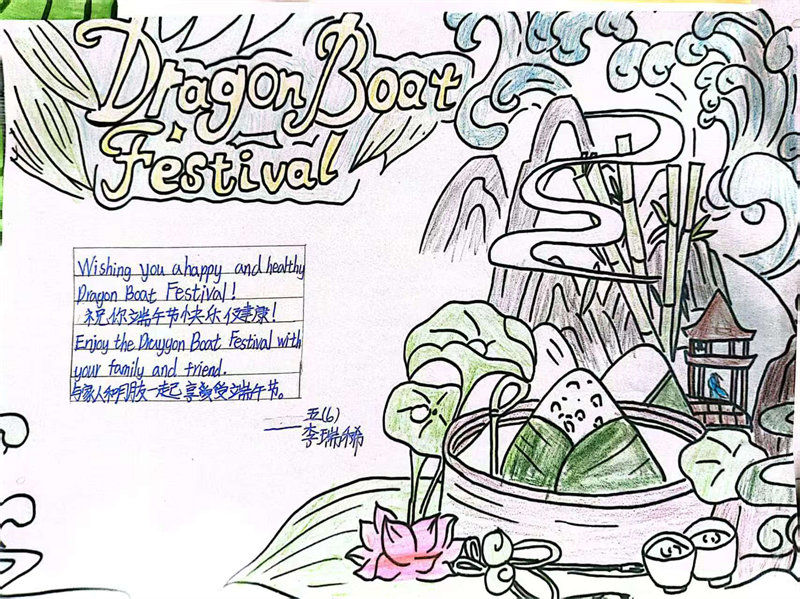 Dragon Boat
Festival
Wishing you a happy and healthy
Dragon Boat Festival!
祝你端午节快乐健康!
Enjoy the Druygon Boat Festival with
your family and friend.
与家人和朋友一起享受端午节。
——五(6)
李瑞稀